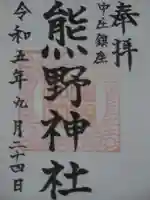 奉拝
中丘鎮座
熊野神社
令和五年九月二十四日